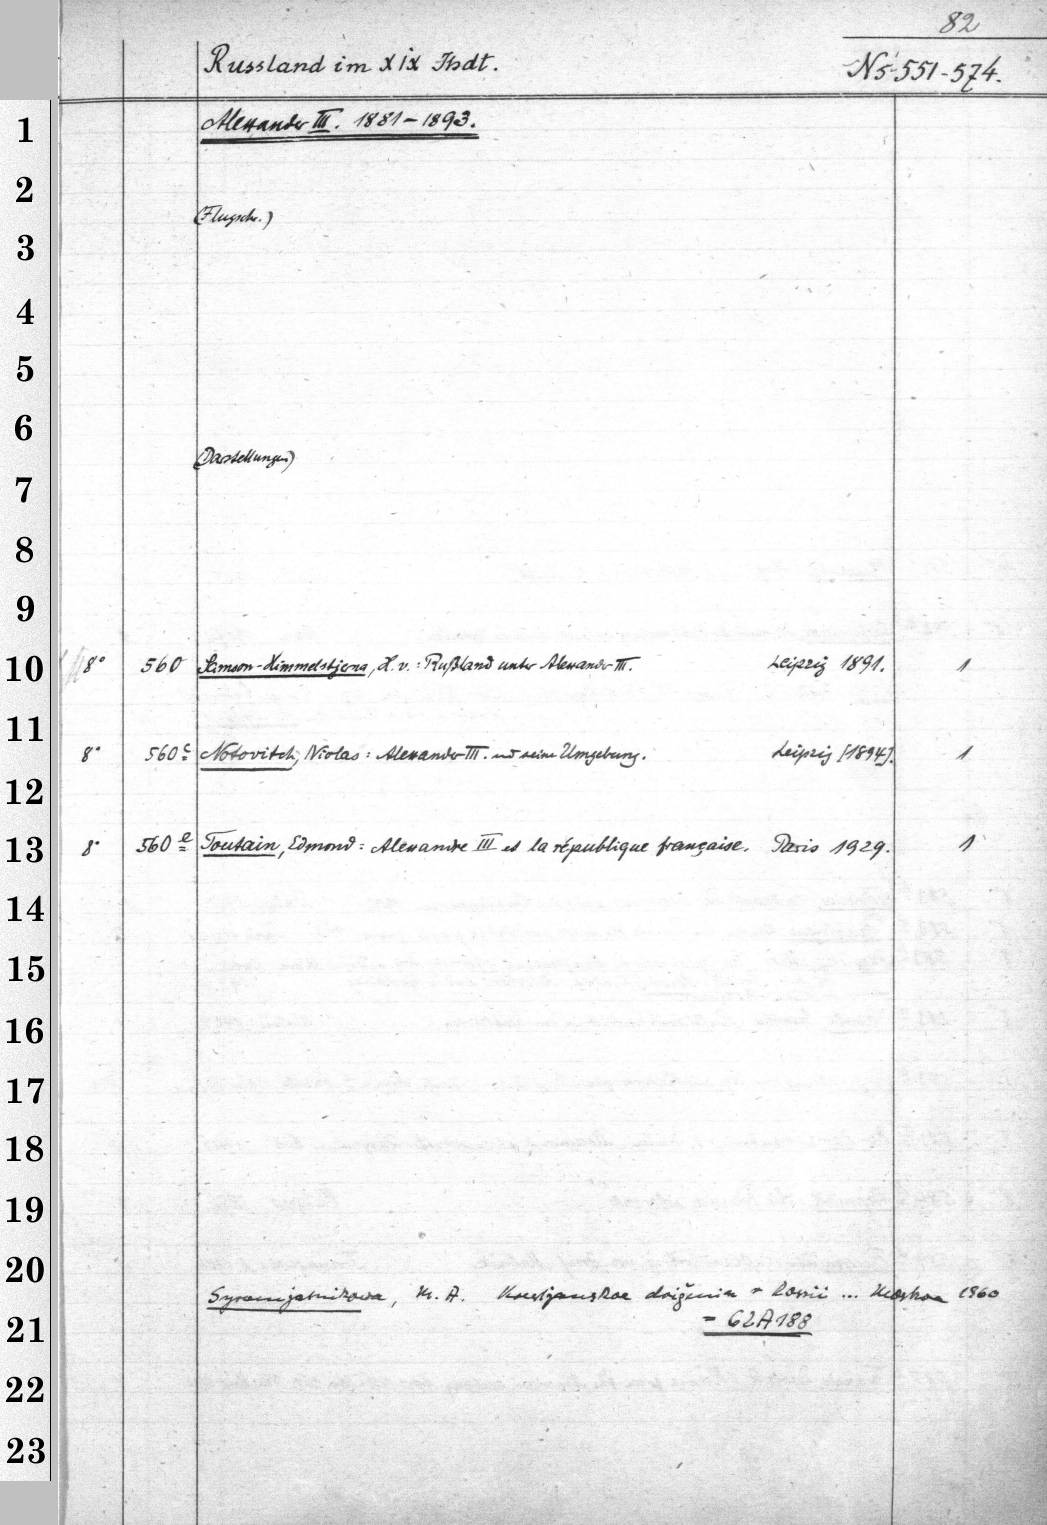 82
Russland im XIX Jhdt.
N 5 551-574.
1
Alexander III. 1881-1893.
2
(Flugschr.)
3
4
5
6
(Darstellungen)
7
8
9
10 8° 560 Samson-Himmelstjerna, H. v.: Rußland unter Alexander III. Leipzig 1891. 1
11 8° 560c Notovitch, Nicolas: Alexander III. und seine Umgebung. Leipzig [1894]. 1
12
13 8° 560e Toutain, Edmond: Alexandre III et la république française. Paris 1929. 1
14
15
16
17
18
19
20
Syromjatnikowa, M. A. Krestjanskoe dviženie v Rossii ... Moskva 1960
= 62A188
21
22
23